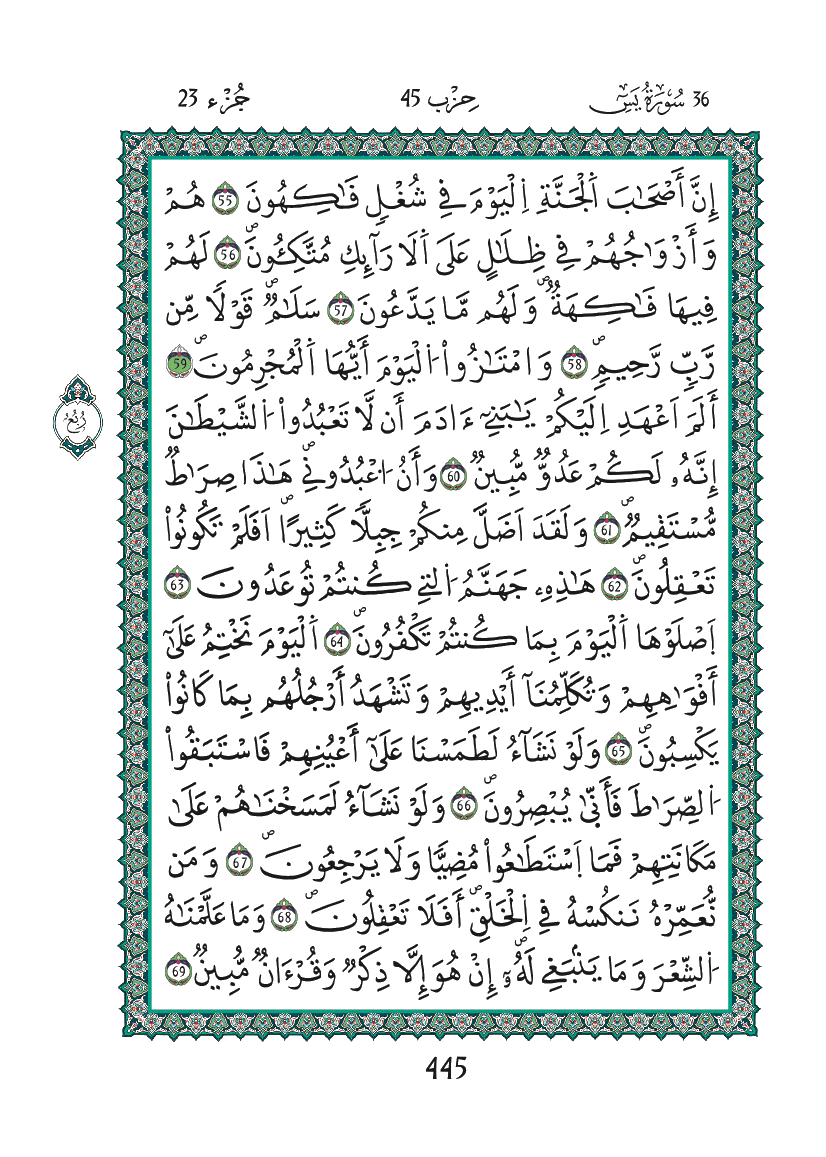 36 سُورَةُ يَسٓ
حِزْب 45
جُزْء 23
إِنَّ أَصْحَٰبَ اَ۬لْجَنَّةِ اِ۬لْيَوْمَ فِے شُغْلٖ فَٰكِهُونَ 55 هُمْ
وَأَزْوَٰجُهُمْ فِے ظِلَٰلٍ عَلَى اَ۬لَارَآئِكِ مُتَّكِـُٔونَۖ 56 لَهُمْ
فِيهَا فَٰكِهَةٞۖ وَلَهُم مَّا يَدَّعُونَۖ 57 سَلَٰمٞۖ قَوْلٗا مِّن
رَّبّٖ رَّحِيمٖۖ 58 وَامْتَٰزُواْ اُ۬لْيَوْمَ أَيُّهَا اَ۬لْمُجْرِمُونَۖ 59
أَلَمَ اَعْهَدِ اِلَيْكُمْ يَٰبَنِےٓ ءَادَمَ أَن لَّا تَعْبُدُواْ اُ۬لشَّيْطَٰنَ
إِنَّهُۥ لَكُمْ عَدُوّٞ مُّبِينٞ 60 وَأَنُ اُ۟عْبُدُونِےۖ هَٰذَا صِرَٰطٞ
مُّسْتَقِيمٞۖ 61 وَلَقَدَ اَضَلَّ مِنكُمْ جِبِلّٗا كَثِيراًۖ اَفَلَمْ تَكُونُواْ
تَعْقِلُونَۖ 62 هَٰذِهِۦ جَهَنَّمُ اُ۬لتِے كُنتُمْ تُوعَدُونَ 63
اَ۪صْلَوْهَا اَ۬لْيَوْمَ بِمَا كُنتُمْ تَكْفُرُونَۖ 64 اَ۬لْيَوْمَ نَخْتِمُ عَلَىٰٓ
أَفْوَٰهِهِمْ وَتُكَلِّمُنَآ أَيْدِيهِمْ وَتَشْهَدُ أَرْجُلُهُم بِمَا كَانُواْ
يَكْسِبُونَۖ 65 وَلَوْ نَشَآءُ لَطَمَسْنَا عَلَىٰٓ أَعْيُنِهِمْ فَاسْتَبَقُواْ
اُ۬لصِّرَٰطَ فَأَنّ۪ىٰ يُبْصِرُونَۖ 66 وَلَوْ نَشَآءُ لَمَسَخْنَٰهُمْ عَلَىٰ
مَكَانَتِهِمْ فَمَا اَ۪سْتَطَٰعُواْ مُضِيّٗا وَلَا يَرْجِعُونَۖ 67 وَمَن
نُّعَمِّرْهُ نَنكُسْهُ فِے اِ۬لْخَلْقِۖ أَفَلَا تَعْقِلُونَۖ 68 وَمَا عَلَّمْنَٰهُ
اُ۬لشِّعْرَ وَمَا يَنۢبَغِے لَهُۥٓۖ إِنْ هُوَ إِلَّا ذِكْرٞ وَقُرْءَانٞ مُّبِينٞ 69
رُبُع
445